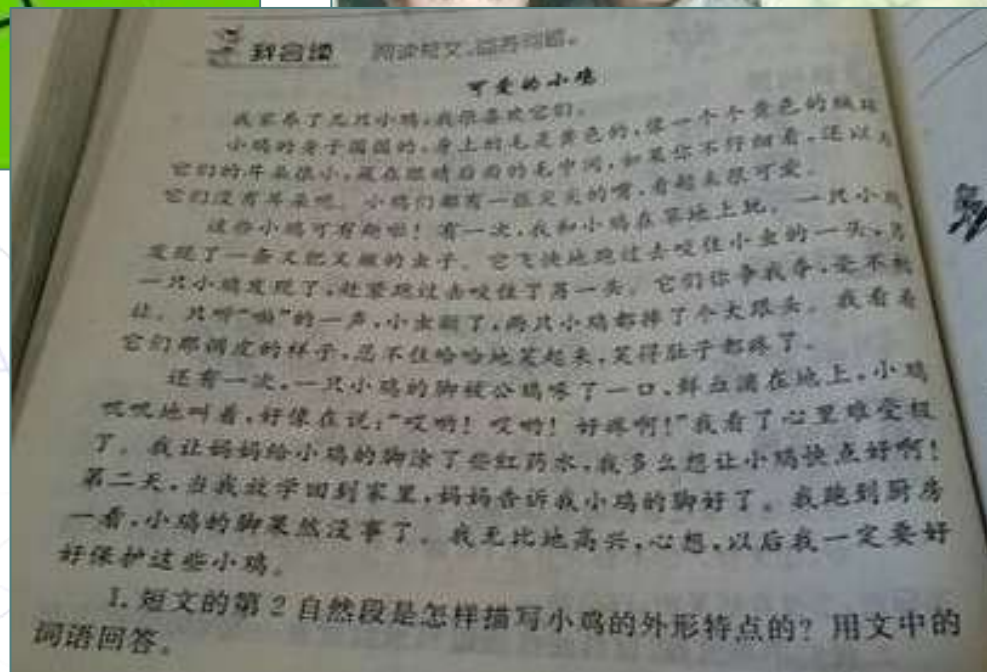 我会读 阅读短文,回答问题。
可爱的小鸡
我家养了几只小鸡,我很喜欢它们。
小鸡的身子圆圆的,身上的毛是黄色的,像一个个黄色的绒球
它们的耳朵很小,藏在眼睛后面的毛中间,如果你不仔细看,还以为
它们没有耳朵呢。小鸡们都有一张尖尖的嘴,看起来很可爱。
这些小鸡可有趣啦!有一次,我和小鸡在草地上玩。一只小鸡
发现了一条又肥又嫩的虫子。它飞快地跑过去咬住小虫的一头,另
一只小鸡发现了,赶紧跑过去咬住了另一头。它们你争我夺,毫不相
让。只听“啪”的一声,小虫断了,两只小鸡都摔了个大跟头。我看着
它们那调皮的样子,忍不住哈哈地笑起来,笑得肚子都疼了。
还有一次,一只小鸡的脚被公鸡啄了一口,鲜血滴在地上,小鸡
叽叽地叫着,好像在说:“哎哟!哎哟!好疼啊!”我看了心里难受极
了。我让妈妈给小鸡的脚涂了些红药水,我多么想让小鸡快点好啊!
第二天,当我放学回到家里,妈妈告诉我小鸡的脚好了。我跑到厨房
一看,小鸡的脚果然没事了。我无比地高兴,心想,以后我一定要好
好保护这些小鸡。
1. 短文的第2自然段是怎样描写小鸡的外形特点的?用文中的
词语回答。